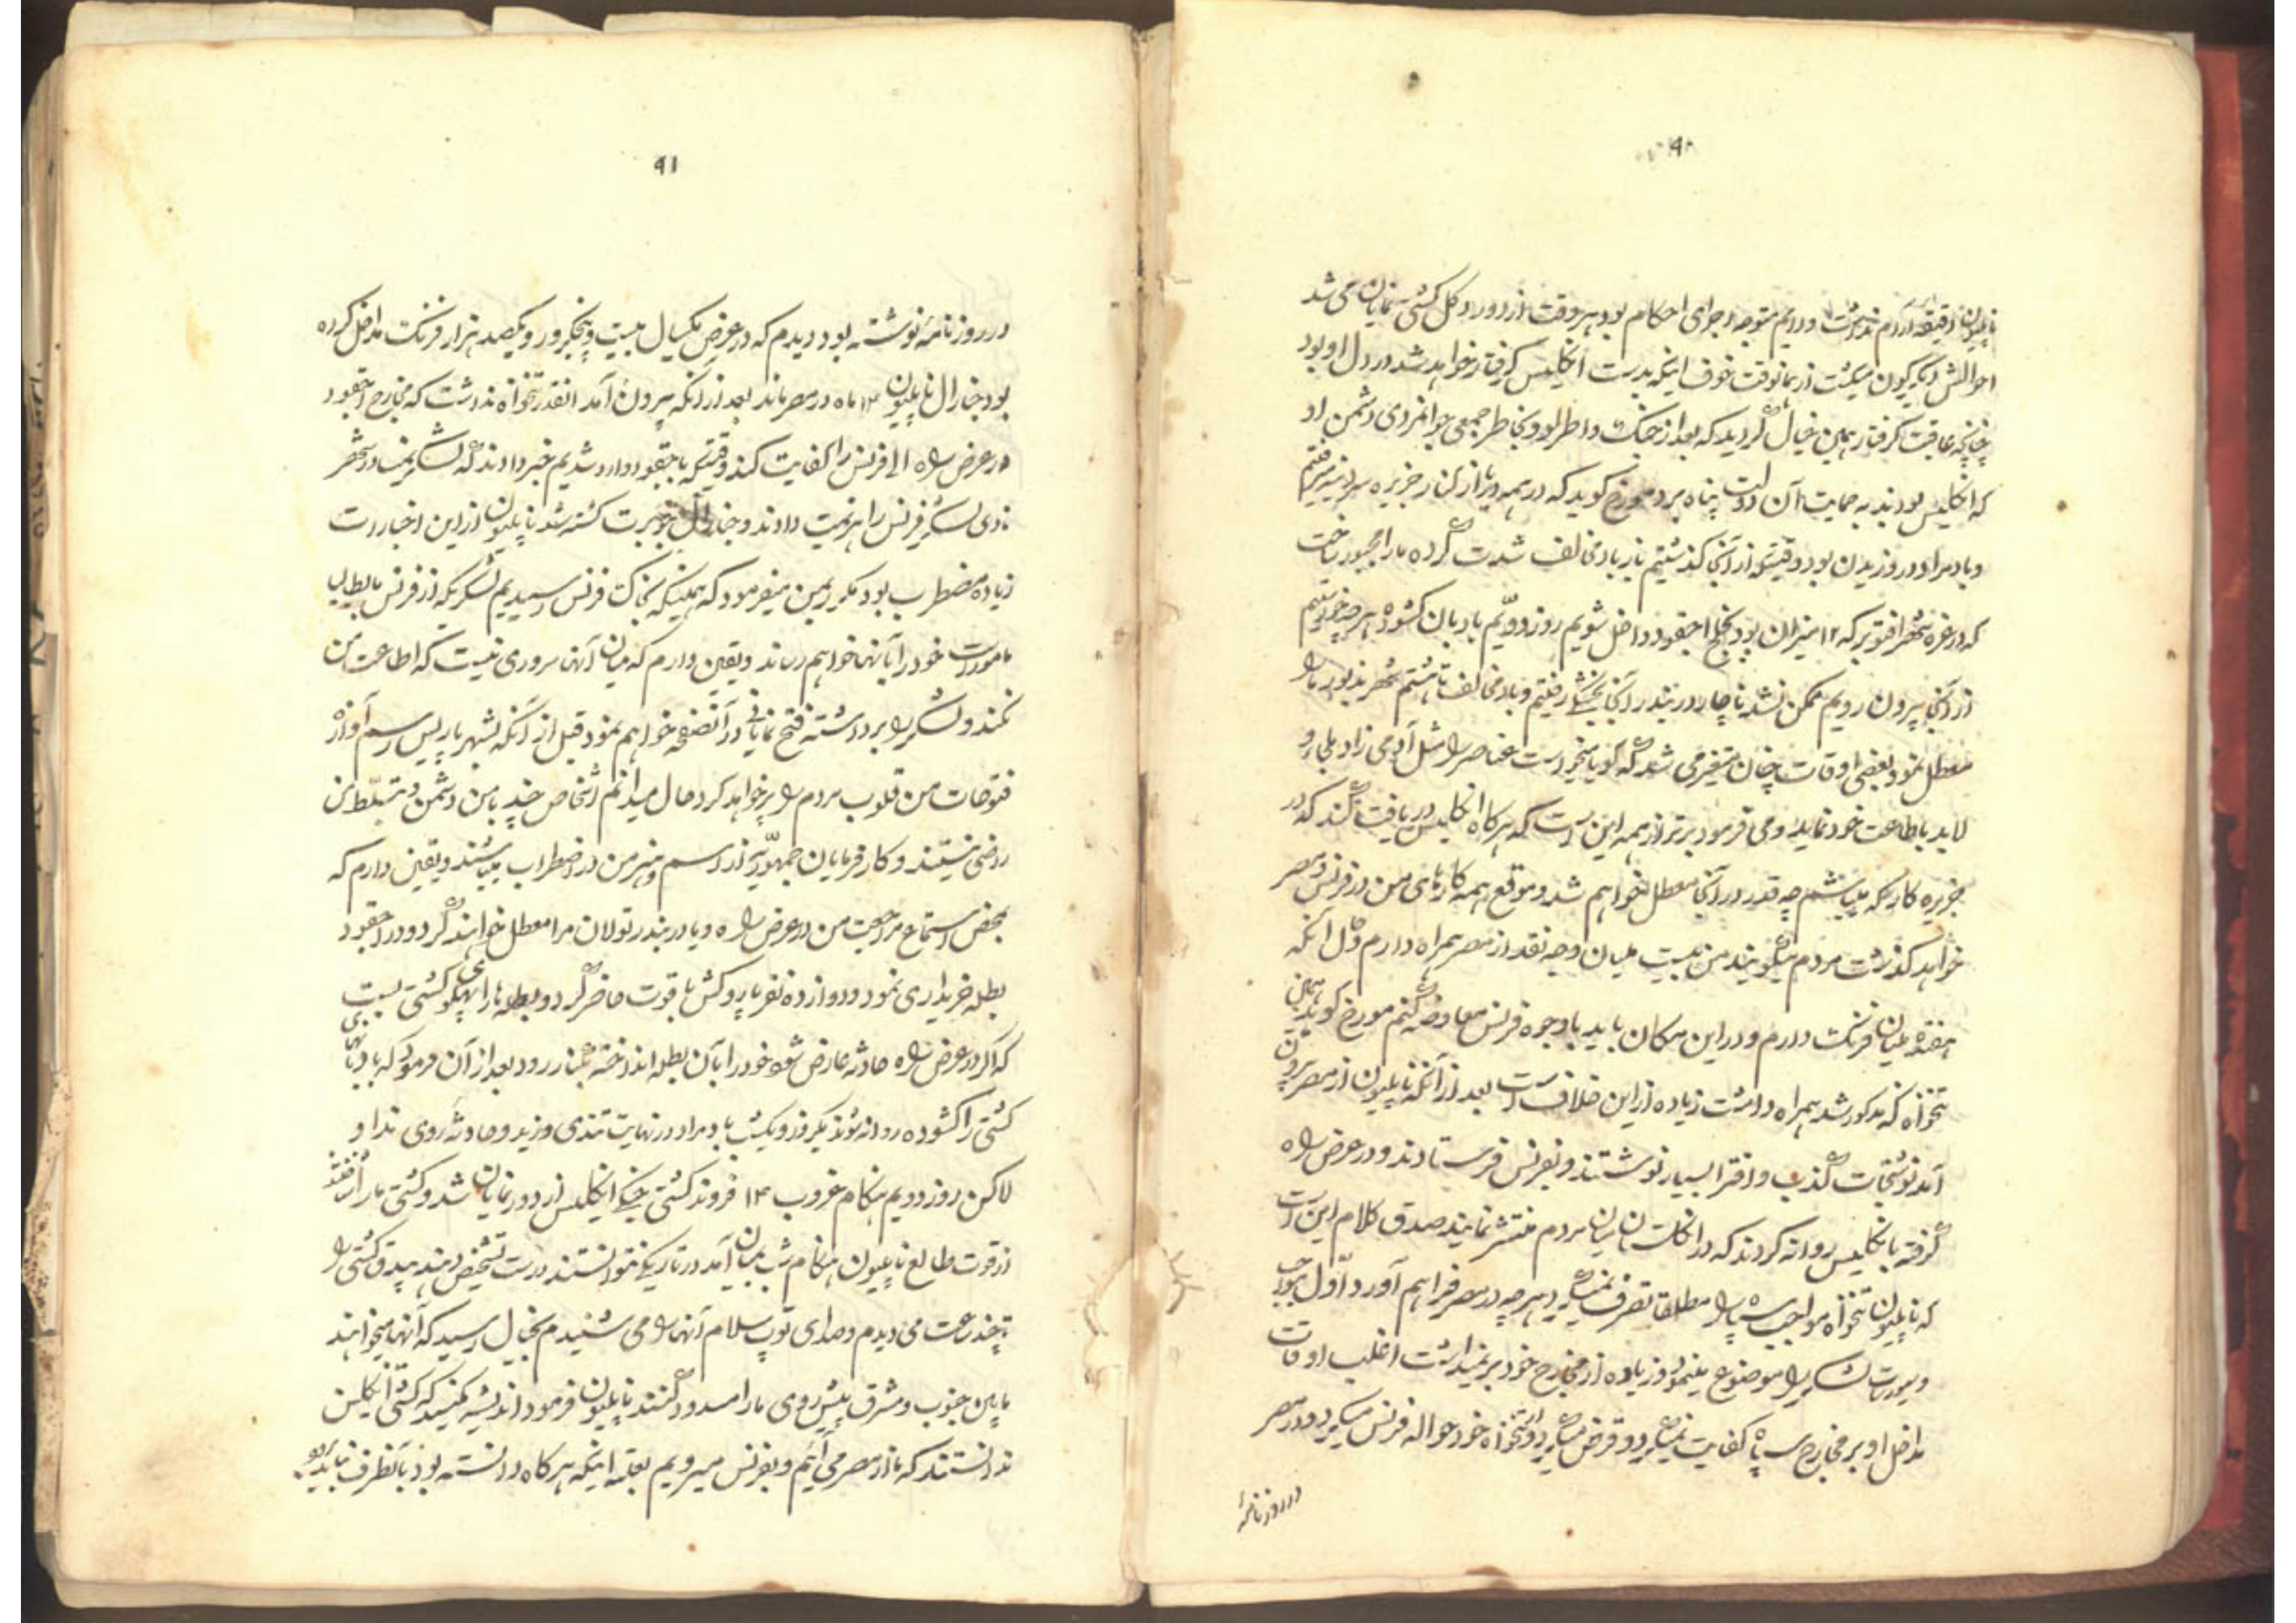 ۹۸
ناپلیون دقیقه آرام نداشت و دایم متوجه اجرای احکام بود هر وقت از دور دکل کشتی نمایان می شد
احوالش دیگرگون میگشت از همانوقت خوف اینکه بدست انگلیس گرفتار خواهد شد در دل او بود
چنانچه عاقبت گرفتار همین خیال گردید که بعد از جنگ واطرلو و بخاطر جمعی جوانمردی دشمن او
که انگلیس بودند به حمایت آن دولت پناه برد مورخ گوید که در همه دریا از کنار جزیره سردنیه میرفتیم
و باد مراد در وزیدن بود وقتیکه از آنجا گذشتیم باز باد مخالف شدت کرده ما را مجبور ساخت
که در غره شهر اقتوبر که ۱۲ میزان بود بخلیج اجقود داخل شویم روز دویّم بادبان گشوده هر چه خواستیم
از آنجا بیرون رویم ممکن نشد ناچار در بندر آنجا بخشکی رفتیم و باد مخالف تا هشتم شهر مذبور ما را
معطل نمود بعضی اوقات چنان متغیر می شد که گویا میخواست عناصر را مثل آدمی زاد بلی و
لابد باطاعت خود نماید و می فرمود برتر از همه این است که هرگاه انگلیس دریافت کند که در
جزیره کارسکه میباشم چه قدر در آنجا معطل خواهم شد و موقع همه کارهای من در فرنس و مصر
خواهد گذشت مردم میگویند من بیست ملیان وجه نقد از مصر همراه دارم و حال آنکه
هفده ملیان فرنک دارم و در این مکان باید با وجوه فرنس معاوضه کنم مورخ گوید همین
تنخواه که مذکور شد همراه داشت زیاده از این خلاف است بعد از آنکه ناپلیون از مصر بیرون
آمد نوشتجات کذب و افترا بسیار نوشتند و بفرنس فرستادند و در عرض راه
گرفته بانگلیس روانه کردند که در انگلستان میان مردم منتشر نمایند صدق کلام این است
که ناپلیون تنخواه مواجب سپاه را مطلقا تصرف نمیکرد هر چه در مصر فراهم آورد اوّل مواجب
و سیورسات لشکر را موضوع مینمود و زیاده از مخارج خود بر نمیداشت اغلب اوقات
مداخل او بر مخارج سپاه کفایت نمیکرد و قرض میکرد و از تنخواه خود حواله فرنس میکرد و در مصر
در روزنامهٔ
۹۱
در روزنامهٔ نوشته بود دیدم که در عرض یکسال بیست و پنجکرور و یکصد هزار فرنک مداخل کرده
بود جنارال ناپلیون ۱۴ ماه در مصر ماند بعد از آنکه بیرون آمد آنقدر تنخواه نداشت که مخارج اجقود
در عرض راه الی فرنس را کفایت کند وقتیکه باجقود وارد شدیم خبر دادند که لشکر نمسا در شهر
نودی لشکر فرنس را هزیمت دادند و جنارال جوبرت کشته شد ناپلیون از این اخبارات
زیاده مضطرب بود مکرر بمن میفرمود که همینکه بخاک فرنس رسیدیم لشکریکه از فرنس بایطالیا
مامورست خود را بآنها خواهم رساند و یقین دارم که میان آنها سروری نیست که اطاعت من
نکند و لشکر را برداشته فتح نمایانی در آنصفحه خواهم نمود قبل از آنکه بشهر پاریس رسم آوازهٔ
فتوحات من قلوب مردم را پر خواهد کرد حال میدانم اشخاص چند با من دشمن و بتسلّط من
راضی نیستند و کارفرمایان جمهوریّه از اسم و هنر من در اضطراب میباشند و یقین دارم که
بمحض استماع مراجعت من در عرض راه و یا در بندر تولان مرا معطل خواهند کرد و در اجقود
بطله خریداری نمود و دوازده نفر پاروکش با قوت حاضر کرد و بطله را به پهلوی کشتی بست
که اگر در عرض راه حادثه عارض شود خود را بآن بطله انداخته بکنار رود بعد از آن فرمود که بادبانهای
کشتی را گشوده روانه شوند یکروز و یکشب باد مراد در نهایت تندی وزید و حادثهٔ روی نداد و
لاکن روز دویم هنگام غروب ۱۴ فروند کشتی جنگی انگلیس از دور نمایان شد و کشتی ما را شناختند
از قوت طالع ناپلیون هنگام شب بمیان آمد در تاریکی نتوانستند درست تشخیص دهند بیدق کشتی را
تا چند ساعت می دیدم و صدای توپ سلام آنها را می شنیدم بخیال رسید که آنها میخواهند
ما بین جنوب و مشرق پیش روی ما را مسدود کنند ناپلیون فرمود اندیشه مکنید که کشتی انگلیس
ندانستند که ما از مصر می آئیم و بفرنس میرویم بعلة اینکه هرگاه دانسته بود بآنطرف